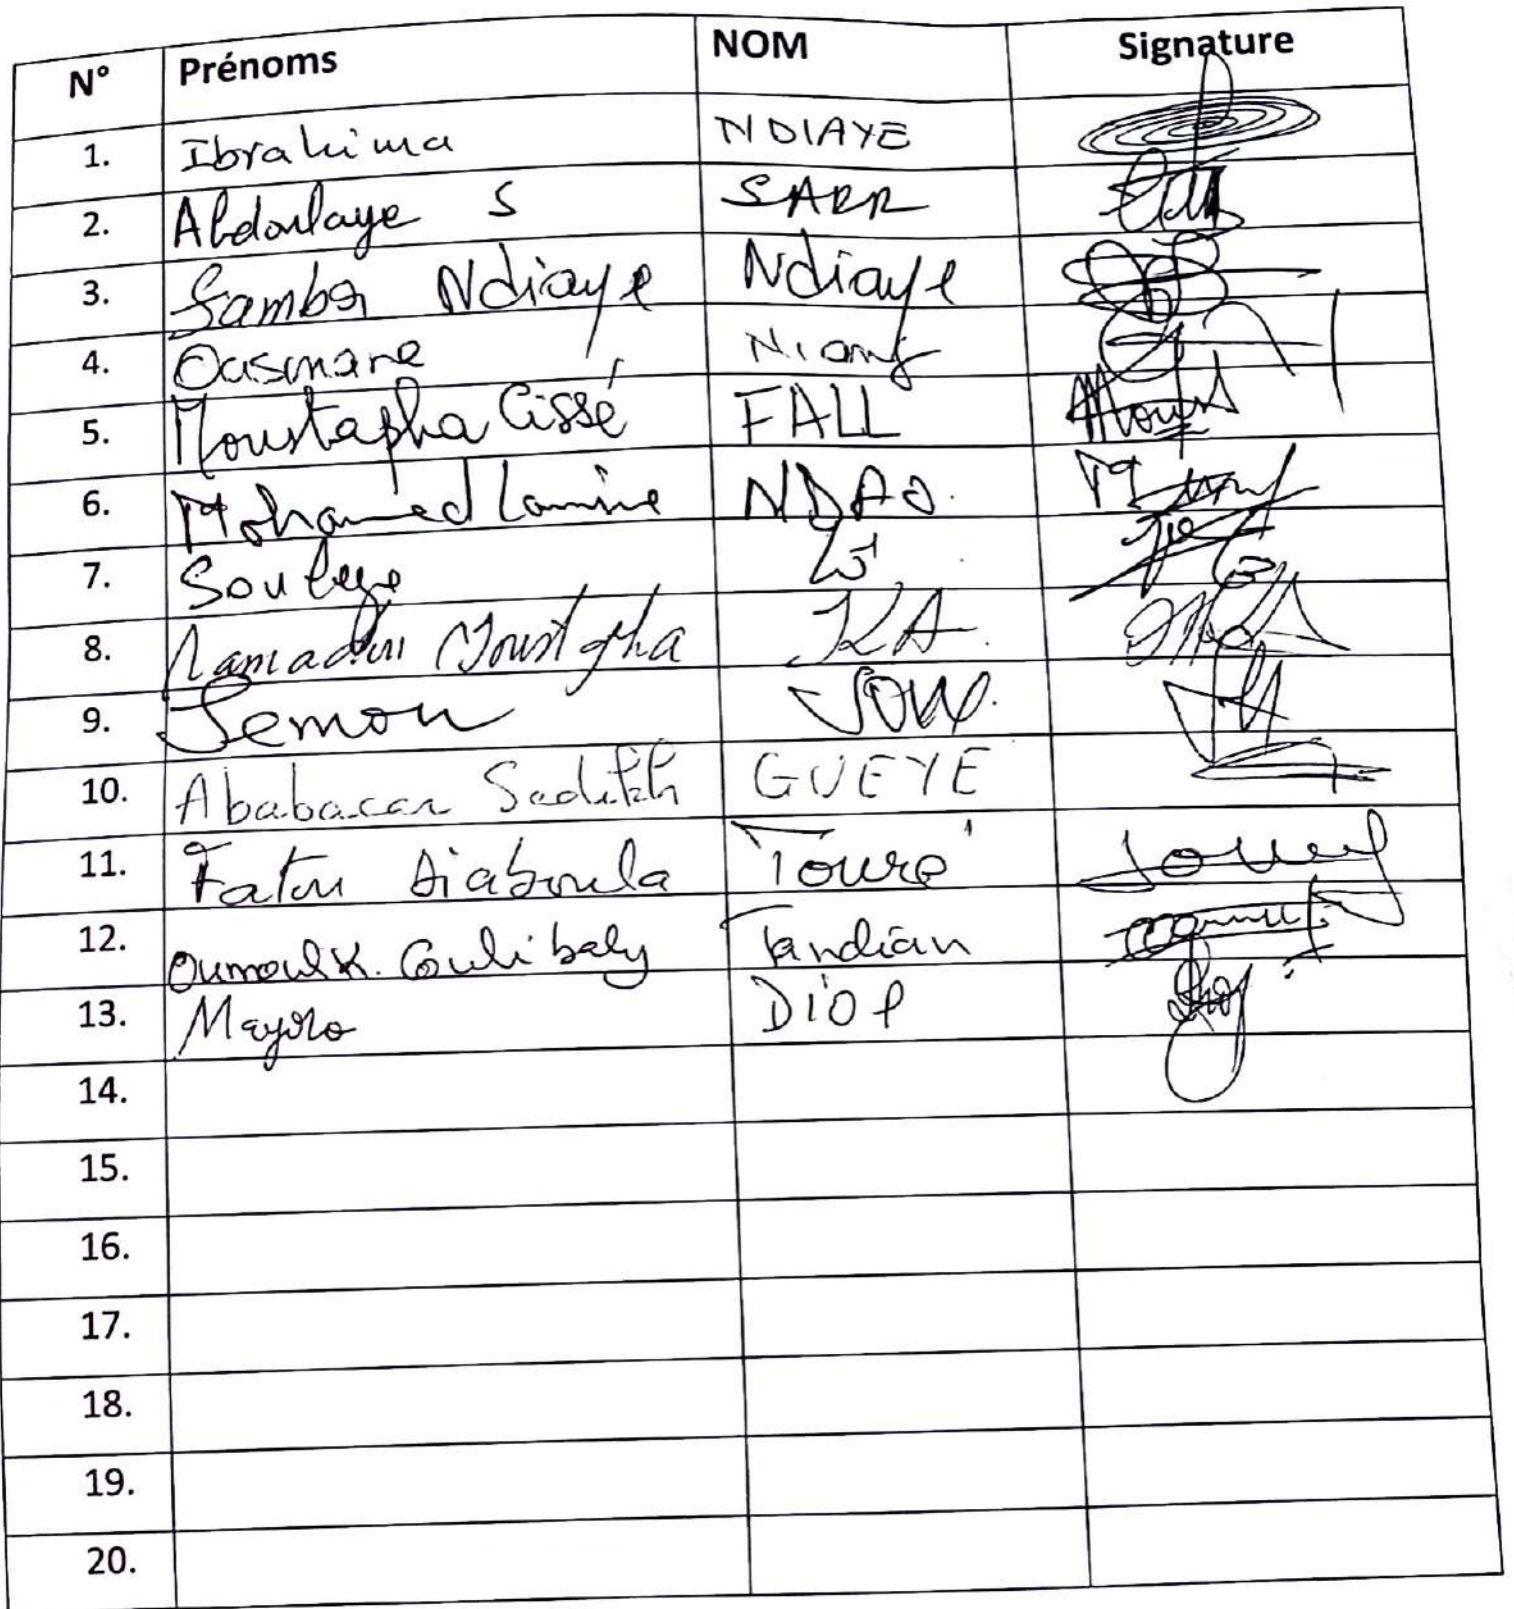 N° Prénoms NOM Signature
1. Ibrahima NDIAYE
2. Abdoulaye S SARR
3. Samba Ndiaye Ndiaye
4. Ousmane Niang
5. Moustapha Cissé FALL
6. Mohamed Lamine NDAO.
7. Souleye Lô
8. Mamadou Moustapha KA.
9. Semou SOW.
10. Ababacar Sadikh GUEYE
11. Fatou Diaboula Touré
12. Oumoul K. Coulibaly Tandian
13. DIOP
14.
15.
16.
17.
18.
19.
20.